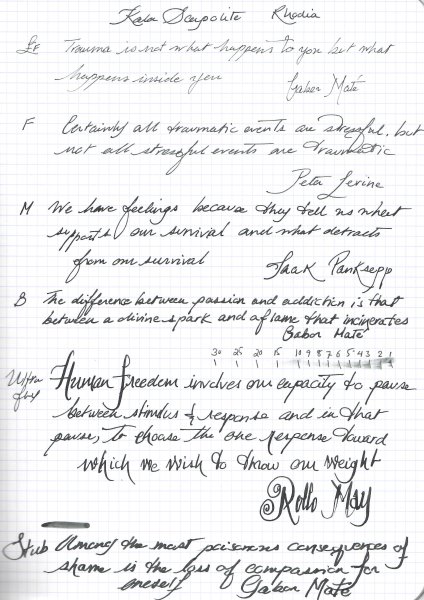 Kaba Scapolite Rhodia
EF Trauma is not what happens to you but what
happens inside you
Gabor Maté
F Certainly all traumatic events are stressful, but
not all stressful events are traumatic
Peter Levine
M We have feelings because they tell us what
supports our survival and what detracts
from our survival
Jaak Panksepp
B The difference between passion and addiction is that
between a divine spark and a flame that incinerates
Gabor Maté
30 25 20 15 10 9 8 7 6 5 4 3 2 1
Ultra
flex
Human freedom involves our capacity to pause
between stimulus & response and in that
pause, to choose the one response toward
which we wish to throw our weight
Rollo May
Stub Among the most poisonous consequences of
shame is the loss of compassion for
oneself Gabor Maté